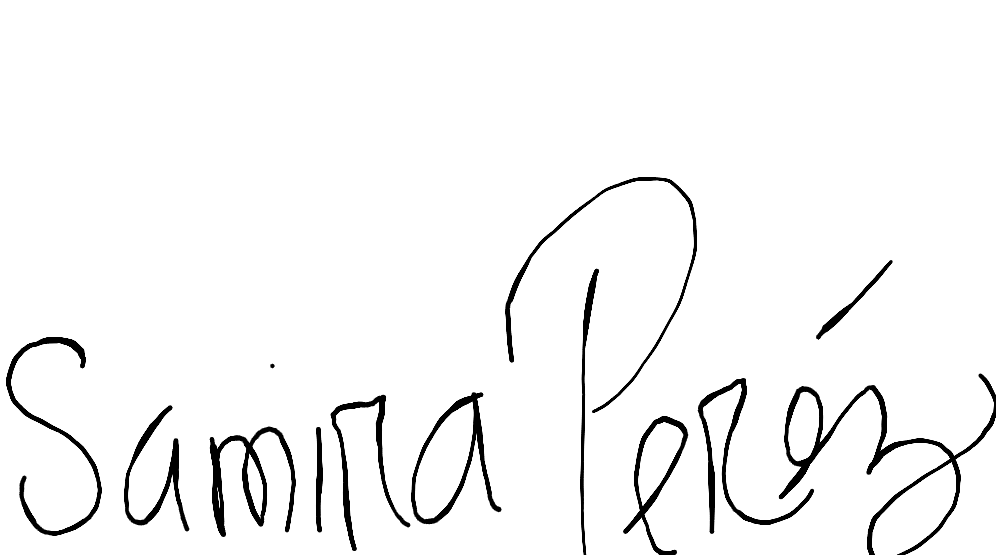 Samira Peréz